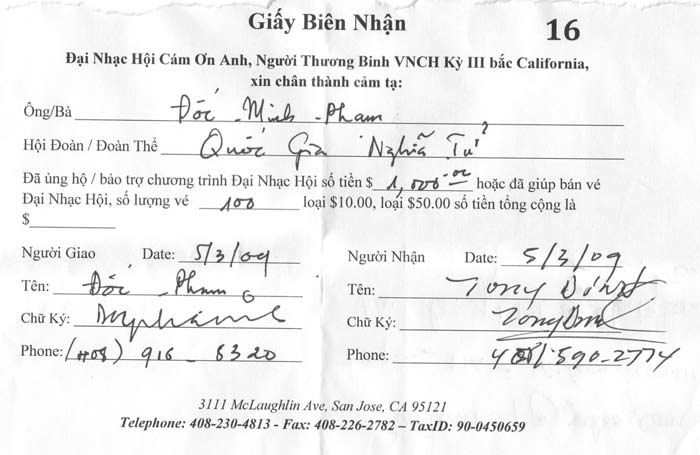 Giấy Biên Nhận 16
Đại Nhạc Hội Cám Ơn Anh, Người Thương Binh VNCH Kỳ III bắc California,
xin chân thành cảm tạ:
Ông/Bà Đốc Minh Pham
Hội Đoàn / Đoàn Thể Quốc Gia Nghĩa Tử
Đã ủng hộ / bảo trợ chương trình Đại Nhạc Hội số tiền $ 1,000.00 hoặc đã giúp bán vé
Đại Nhạc Hội, số lượng vé 100 loại $10.00, loại $50.00 số tiền tổng cộng là
$
Người Giao Date: 5/3/09 Người Nhận Date: 5/3/09
Tên: Đốc Pham Tên: Tony Đinh
Chữ Ký: Chữ Ký:
Phone: (408) 916-8320 Phone: 408/590-2774
3111 McLaughlin Ave, San Jose, CA 95121
Telephone: 408-230-4813 - Fax: 408-226-2782 – TaxID: 90-0450659